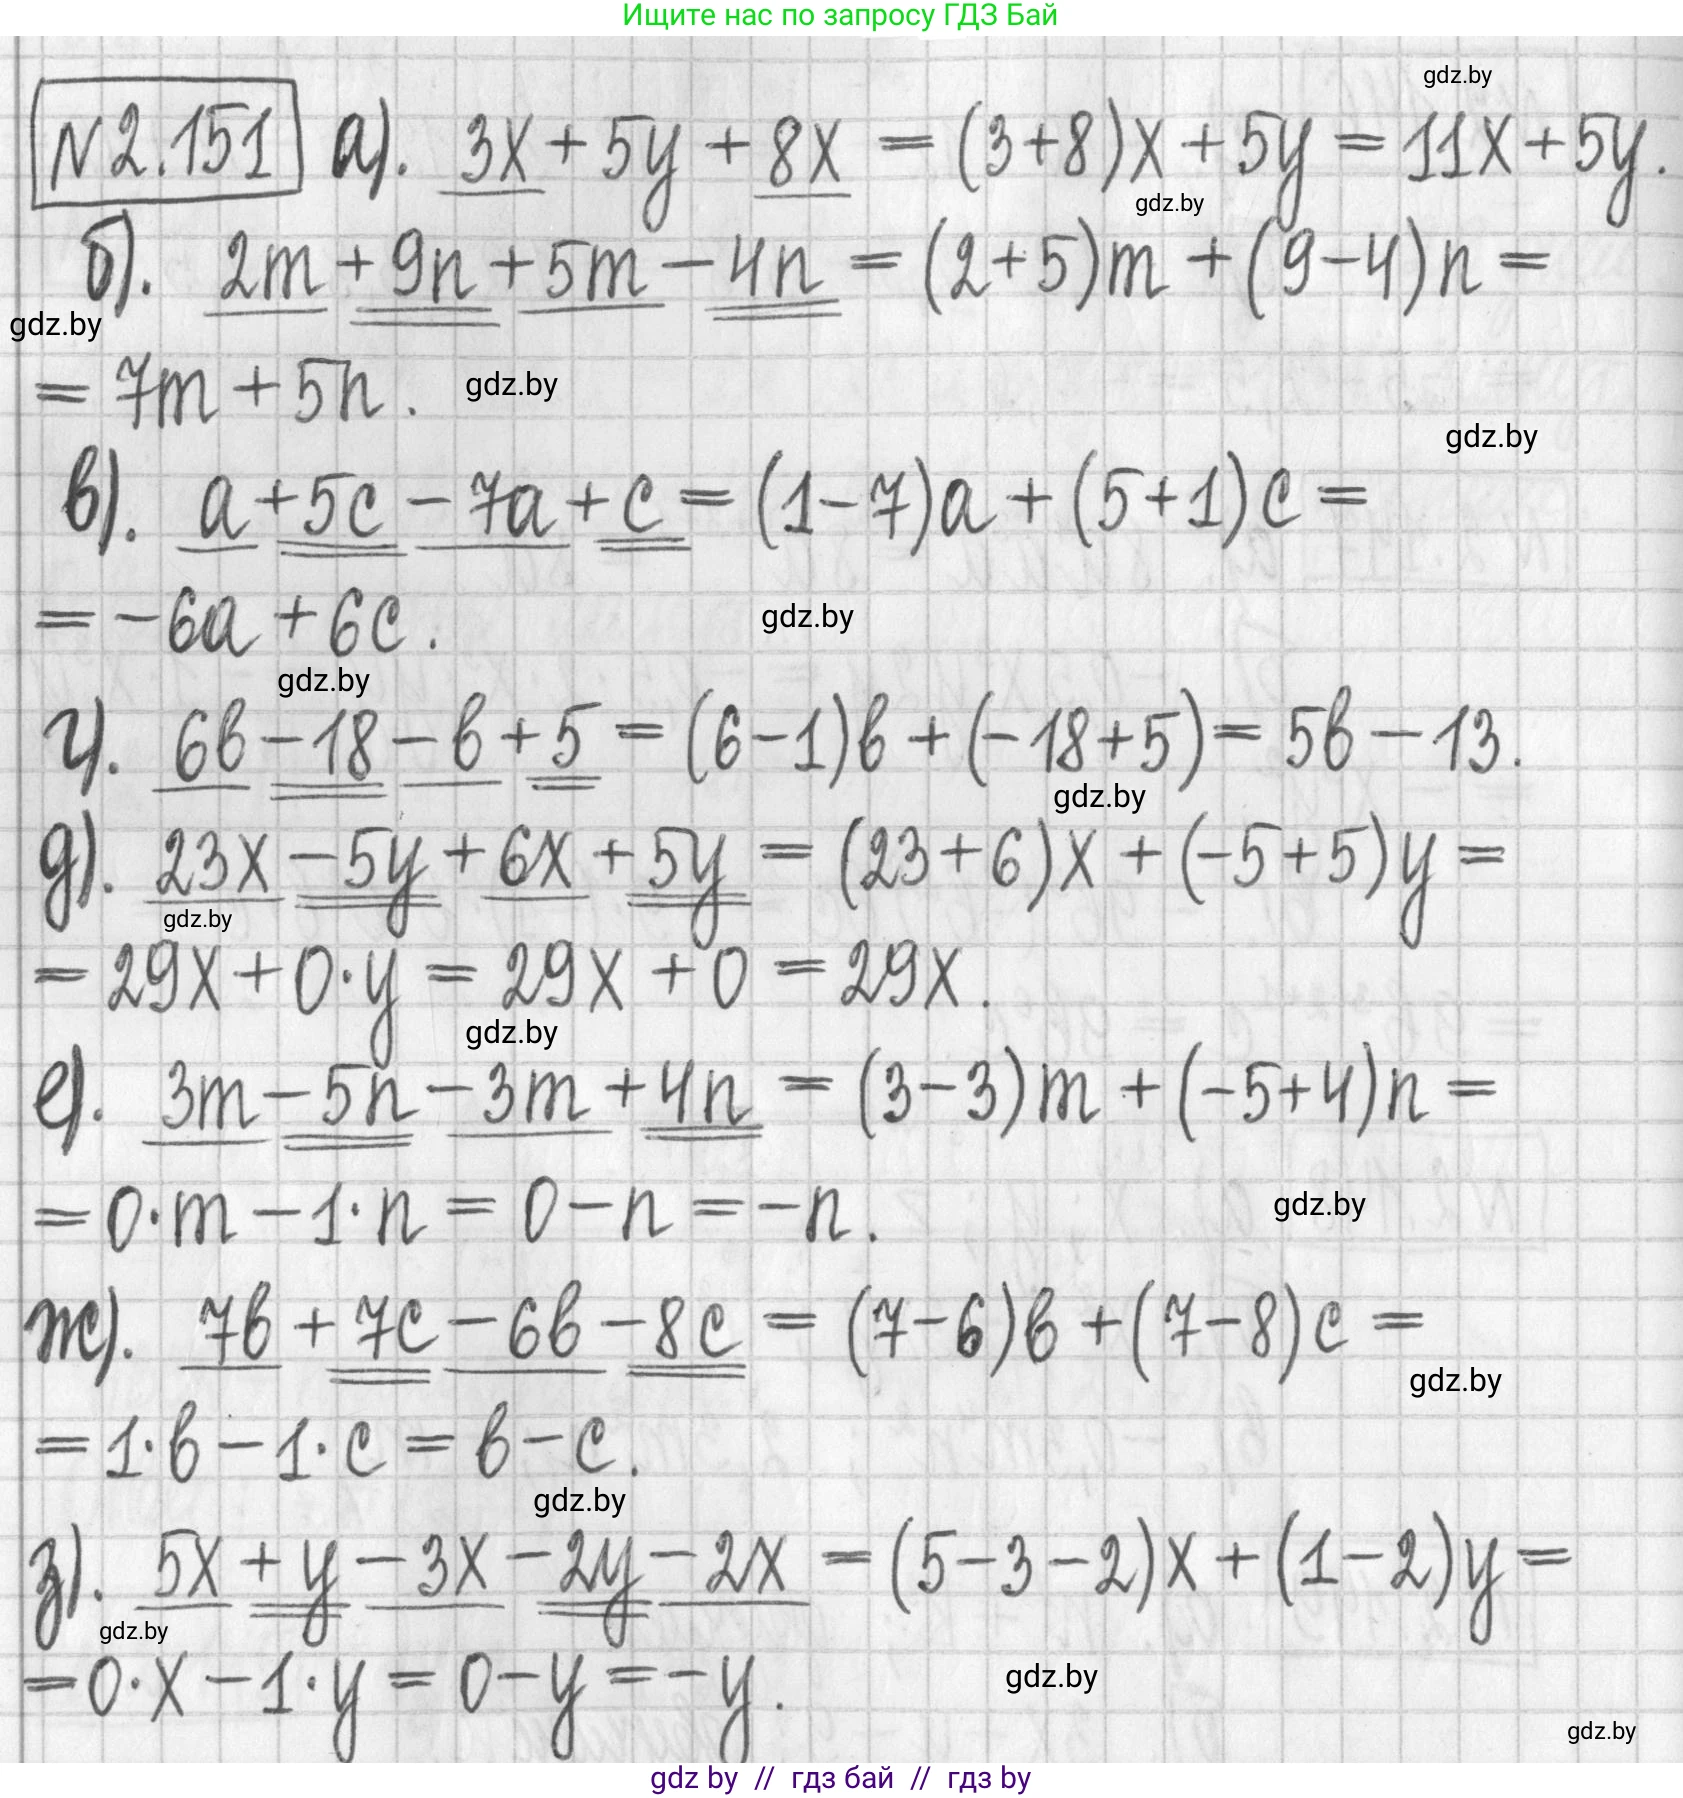 Ищите нас по запросу ГДЗ Бай
gdz.by
N2.151 а). 3x + 5y + 8x = (3+8)x + 5y = 11x + 5y.
gdz.by
б). 2m + 9n + 5m - 4n = (2+5)m + (9-4)n =
gdz.by
= 7m + 5n.
gdz.by
gdz.by
в). a + 5c - 7a + c = (1-7)a + (5+1)c =
= -6a + 6c.
gdz.by
gdz.by
г). 6b - 18 - b + 5 = (6-1)b + (-18+5) = 5b - 13.
gdz.by
д). 23x - 5y + 6x + 5y = (23+6)x + (-5+5)y =
gdz.by
= 29x + 0·y = 29x + 0 = 29x.
gdz.by
е). 3m - 5n - 3m + 4n = (3-3)m + (-5+4)n =
= 0·m - 1·n = 0 - n = -n.
gdz.by
ж). 7b + 7c - 6b - 8c = (7-6)b + (7-8)c =
gdz.by
= 1·b - 1·c = b - c.
gdz.by
з). 5x + y - 3x - 2y - 2x = (5-3-2)x + (1-2)y =
gdz.by
= 0·x - 1·y = 0 - y = -y.
gdz.by
gdz.by
gdz by // гдз бай // гдз by